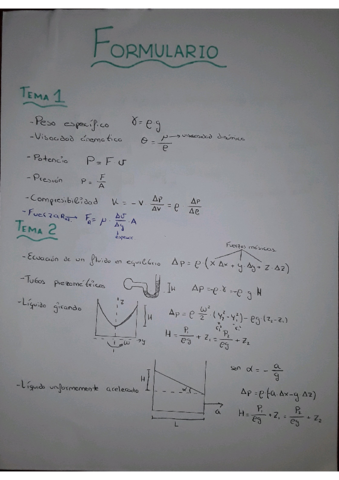 FORMULARIO
TEMA 1
- Peso específico γ = ρ g
- Viscosidad cinematica θ = μ/ρ → viscosidad dinámica
- Potencia P = F v
- Presión p = F/A
- Compresibilidad K = - V Δp/ΔV = ρ Δp/Δρ
- Fuerza
TEMA 2
Fuerzas másicas
- Ecuación de un fluido en equilibrio Δp = ρ (X Δx + Y Δy + Z ΔZ)
- Tubos piezométricos H Δp = -ρ g Z = -ρ g H
- Líquido girando Z H y ω Δp = ρ ω²/2 (y₂² - y₁²) - ρg (Z₂ - Z₁)
H = P₁/ρg + Z₁ = P₂/ρg + Z₂
- Líquido uniformemente acelerado H α L a
H = P₁/ρg + Z₁ = P₂/ρg + Z₂